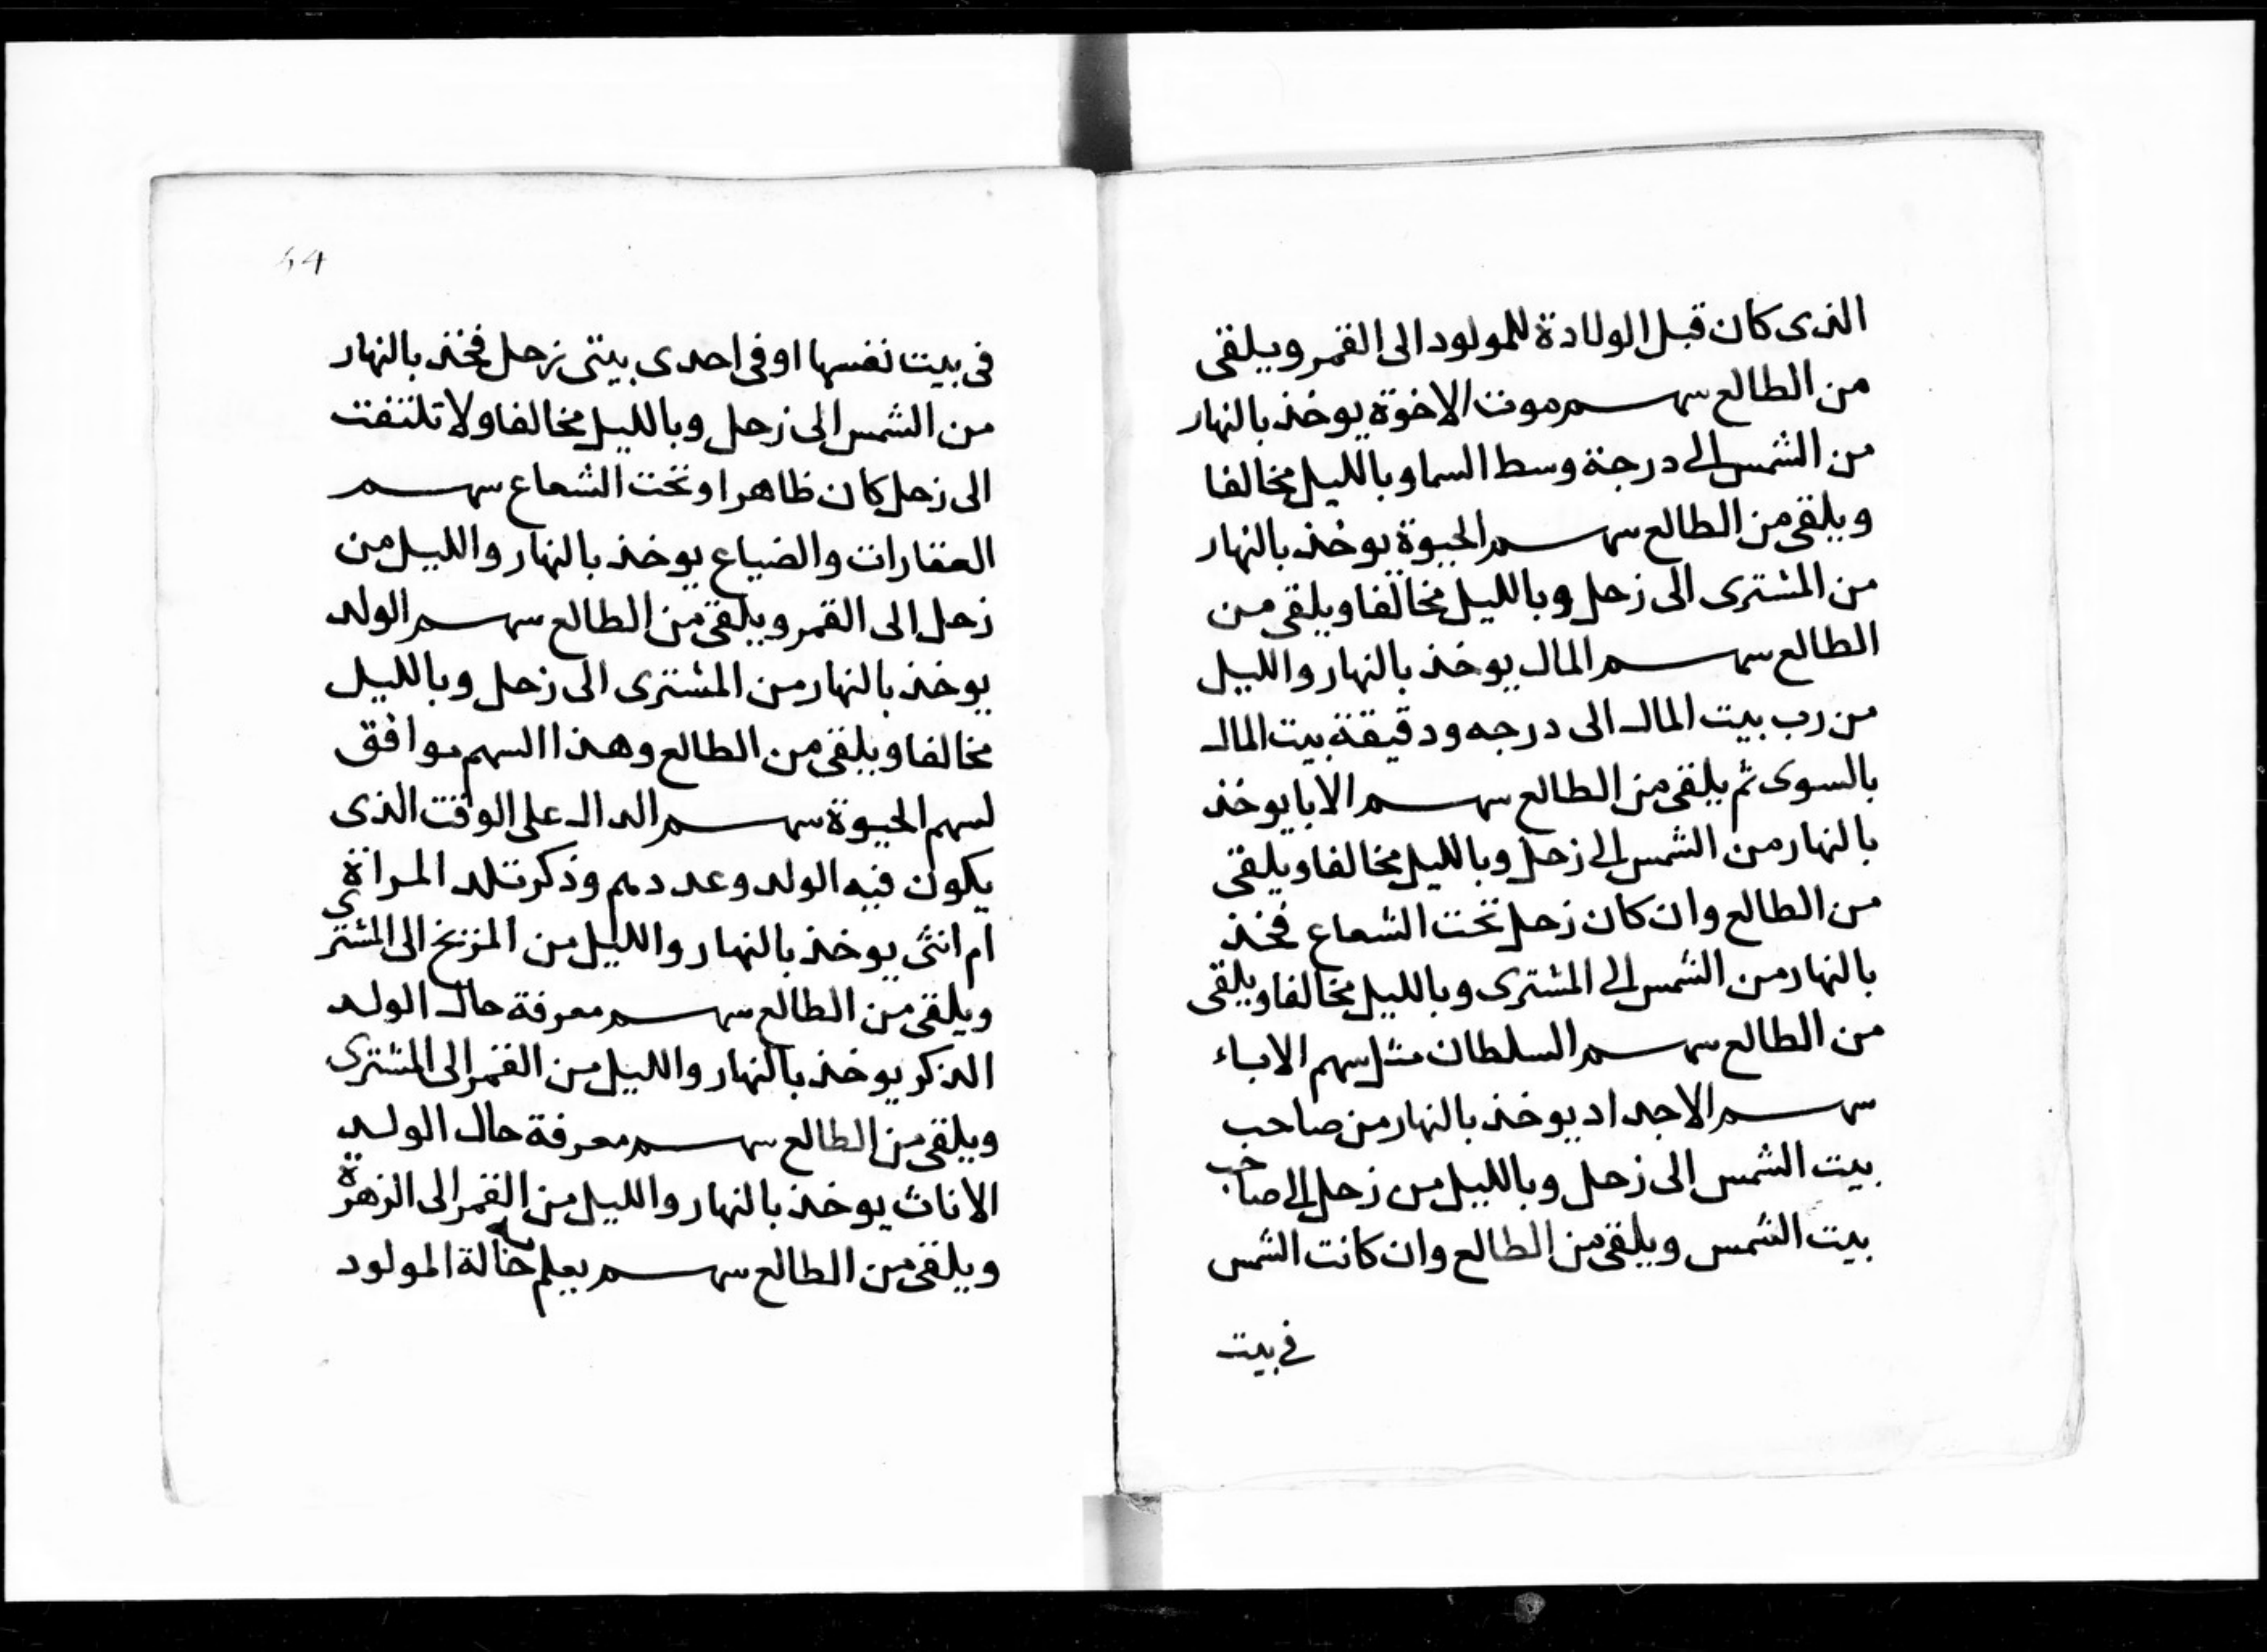 الذى كان قبل الولادة للمولود الى القمر ويلقى
من الطالع سهم موت الاخوة يوخذ بالنهار
من الشمس الى درجة وسط السما وبالليل مخالفا
ويلقى من الطالع سهم الحيوة يوخذ بالنهار
من المشترى الى زحل وبالليل مخالفا ويلقى من
الطالع سهم المال يوخذ بالنهار والليل
من رب بيت المال الى درجه ودقيقة بيت المال
بالسوى ثم يلقى من الطالع سهم الابا يوخذ
بالنهار من الشمس الى زحل وبالليل مخالفا ويلقى
من الطالع وان كان زحل تحت الشعاع فخذ
بالنهار من الشمس الى المشترى وبالليل مخالفا ويلقى
من الطالع سهم السلطان مثل سهم الاباء
سهم الاجداد يوخذ بالنهار من صاحب
بيت الشمس الى زحل وبالليل من زحل الى صاحب
بيت الشمس ويلقى من الطالع وان كانت الشمس
فى بيت
54
فى بيت نفسها او فى احدى بيتى زحل فخذ بالنهار
من الشمس الى زحل وبالليل مخالفا ولا تلتفت
الى زحل كان ظاهرا او تحت الشعاع سهم
العقارات والضياع يوخذ بالنهار والليل من
زحل الى القمر ويلقى من الطالع سهم الولد
يوخذ بالنهار من المشترى الى زحل وبالليل
مخالفا ويلقى من الطالع وهذا السهم موافق
لسهم الحيوة سهم الدال على الوقت الذى
يكون فيه الولد وعددهم وذكر تلد المراة
ام انثى يوخذ بالنهار والليل من المريخ الى المشترى
ويلقى من الطالع سهم معرفة حال الولد
الذكر يوخذ بالنهار والليل من القمر الى المشترى
ويلقى من الطالع سهم معرفة حال الولد
الاناث يوخذ بالنهار والليل من القمر الى الزهرة
ويلقى من الطالع سهم يعلم به حالة المولود